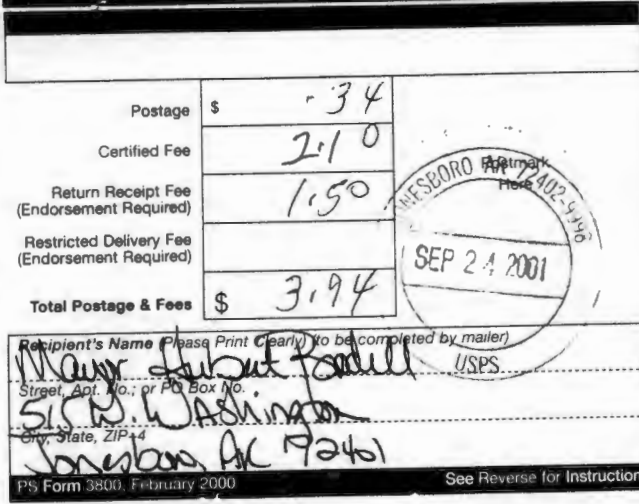 Postage $ .34
Certified Fee 2.10
Return Receipt Fee
(Endorsement Required) 1.50
Restricted Delivery Fee
(Endorsement Required)
Total Postage & Fees $ 3.94
Postmark
Here
JONESBORO AR 72402-9998
SEP 24 2001
USPS
Recipient's Name (Please Print Clearly) (to be completed by mailer)
Mayor Hubert
Street, Apt. No.; or PO Box No.
515 W. Washington
City, State, ZIP+4
Jonesboro, AR 72401
PS Form 3800, February 2000 See Reverse for Instruction